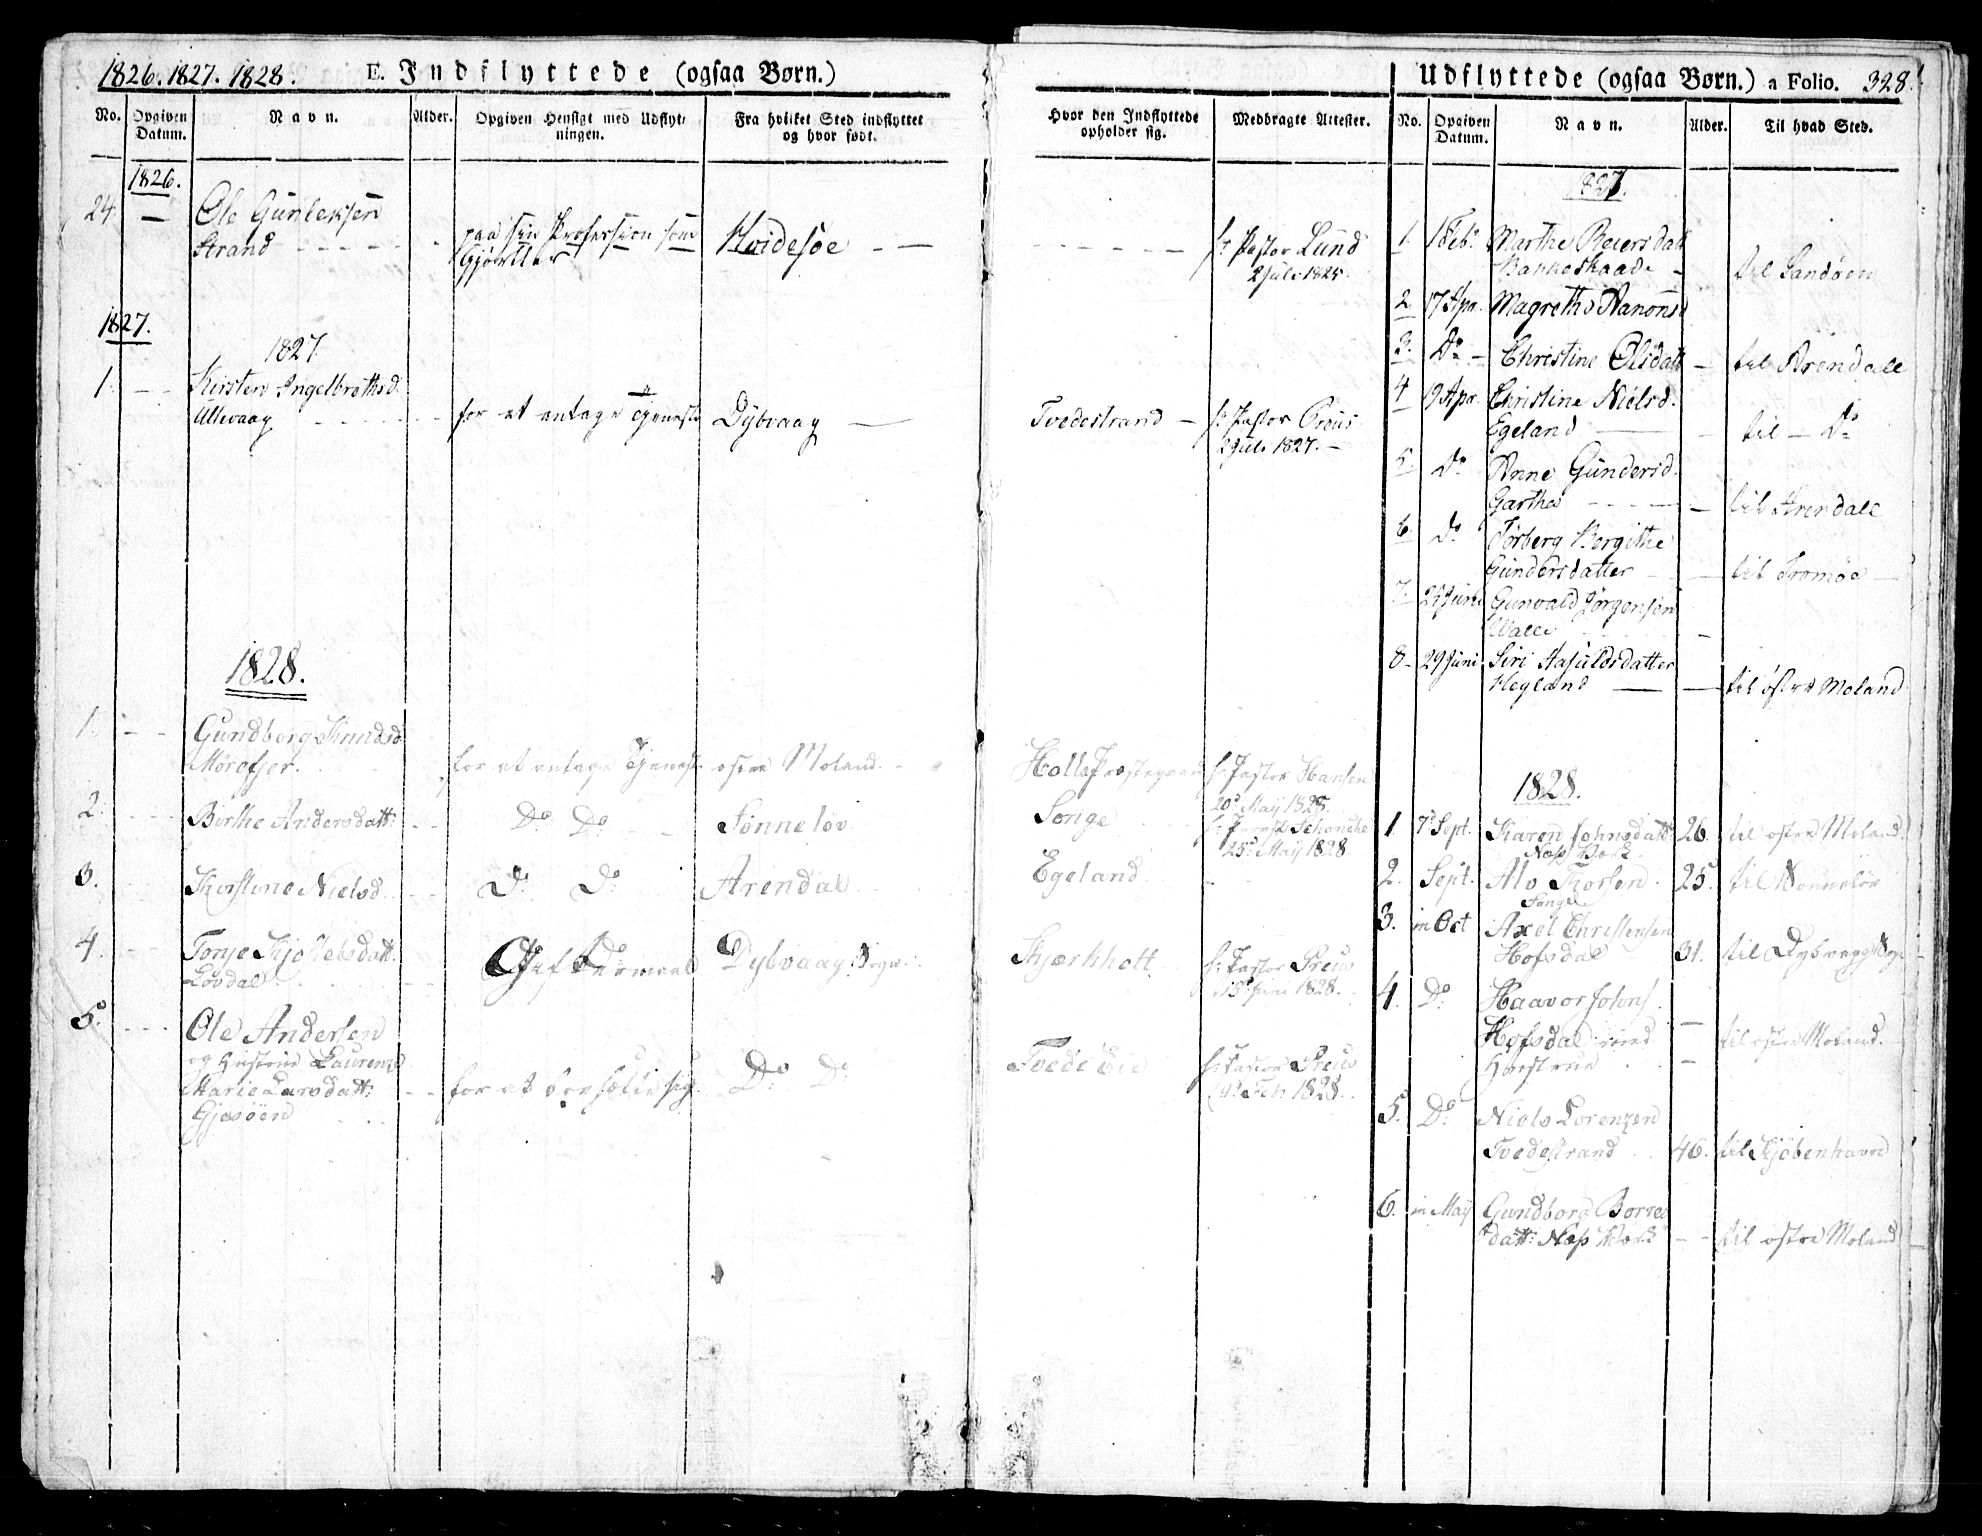 1826. 1827. 1828. E. Indflyttede (ogsaa Børn.)
No. Opgiven Datum. Navn. Alder. Opgiven Hensigt med Udflyt- ningen. Fra hvilket Sted indflyttet og hvor født.
1826.
24 — Ole Gunleksen
Strand paa sin Profession som Hvidesøe
1827.
1827
1. Kirsten Ingelbrethsd.
Allevaag for at antage Tjeneste Dybvaag
1828.
1. Gundborg Knudsd
Morefjer. for at antage Tjeneste østre Moland.
2. Birthe Andersdatt: Do Do Sønneløv
3. Kirstine Nielsd. Do Do Arendal
4. Tonje Kjø
Løvdal. Gift Dybvaag
5. Ole Andersen
og Hustrue Laurense
Marie Larsdatt: for at Do Do
Gjesøen
Hvor den Indflyttede opholder sig. Medbragte Attester.
Hr Pastor Lund
2 Juli 1825.
Tvedestrand — Hr Pastor
2 Juli 1827. —
Holla Præstegaard Hr Pastor Hansen
20de May 1828.
Songe
25de May 1828
Egeland
Hr Pastor Preus
15de Juni 1828.
Tvede Eie Hr Pastor Preus
Feb 1828.
Udflyttede (ogsaa Børn.) a Folio. 328.
No. Opgiven Datum. Navn. Alder. Til hvad Sted.
1827.
1. Feb. Marthe Reiersdatt
til Sandøen
2 17 Apr. Magrethe
3. Do — Christine Olsdatt — til Arendall
4 19 Apr. Christine Nielsd.
Egeland — til — Do
5. Do Anne Gundersd.
Gartha — til Arendall
6. Do Torberg Bergithe
Gundersdatter — til Tromøe
7. Juni Gunvald Jørgensen
Walle
8. 29 Juni Siri Aasuldsdatter
Hegland — til østre Moland
1828.
1. 7de Sept. Karen Johnsdatt: 26. til østre Moland.
Næs Værk
2. Sept. Alv Thorsen. 25. til Sønneløv
Songe
3. in Oct Axel Christensen
Hofsdal 31. til Dybvaag
4. Do Haavor Johns
Hofsdal med — til østre Moland.
Hustrue
5. Do Niels Lorenzen
Tvedestrand 46. til Kjøbenhavn
6. in May Gundborg Borres
datt: Næs Værk — til østre Moland